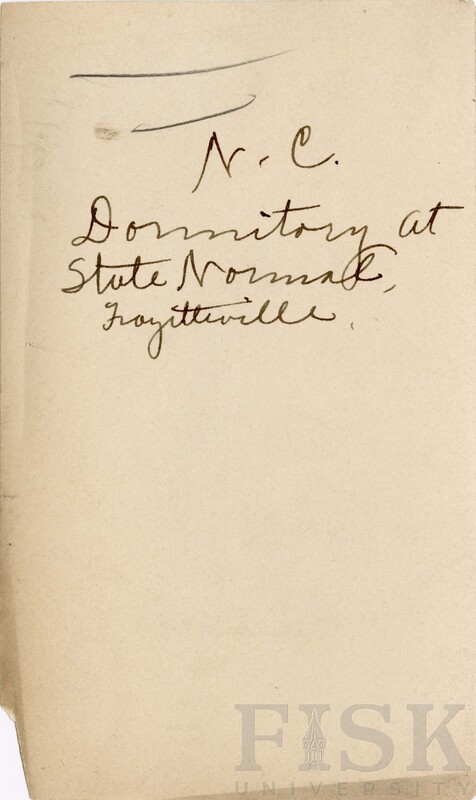 N. C.
Dormitory at
State Normal,
Fayetteville.
FISK
UNIVERSITY